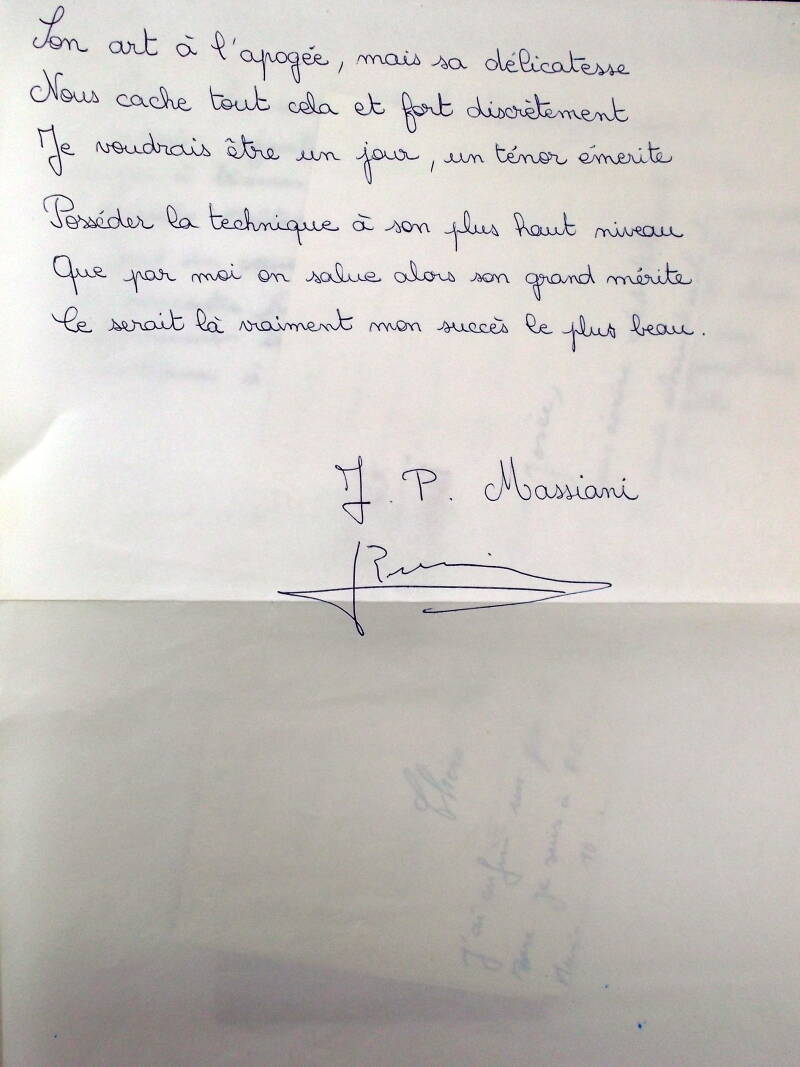 Son art à l'apogée, mais sa délicatesse
Nous cache tout cela et fort discrètement
Je voudrais être un jour, un ténor émerite
Posséder la technique à son plus haut niveau
Que par moi on salue alors son grand mérite
Ce serait là vraiment mon succès le plus beau.
J. P. Massiani